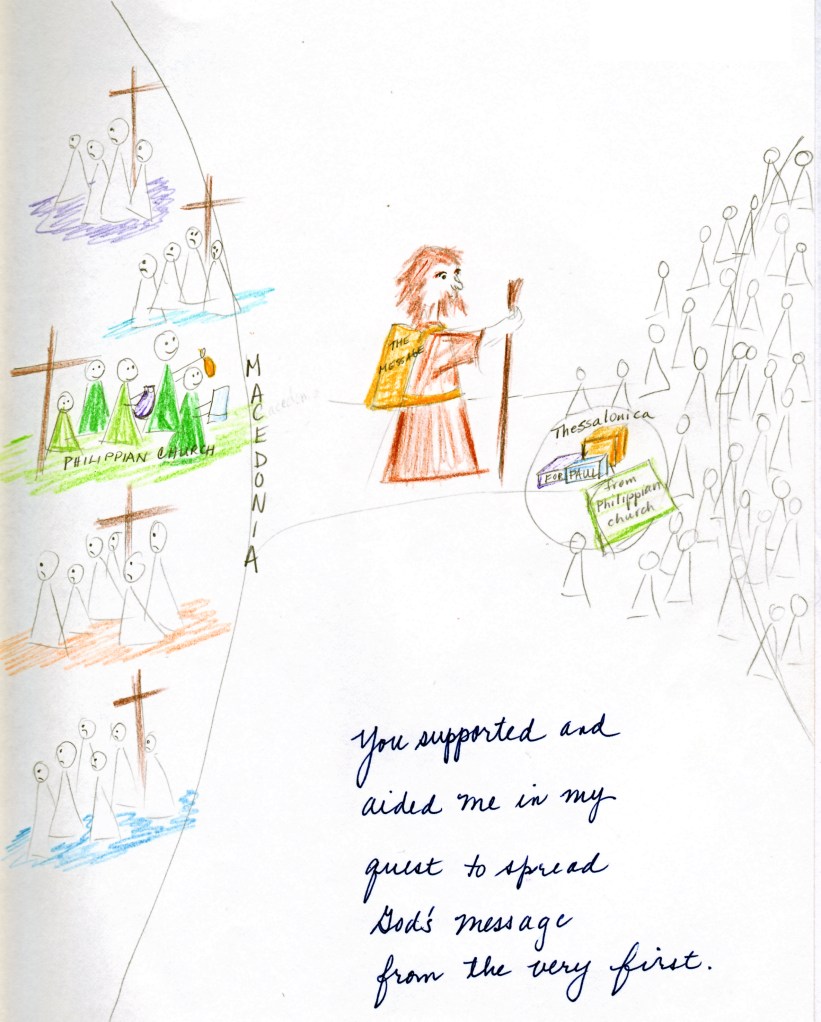 THE
MESSAGE
MACEDONIA
Macedonia
PHILIPPIAN CHURCH
Thessalonica
FOR PAUL
from
Philippian
church
You supported and
aided me in my
quest to spread
God's message
from the very first.